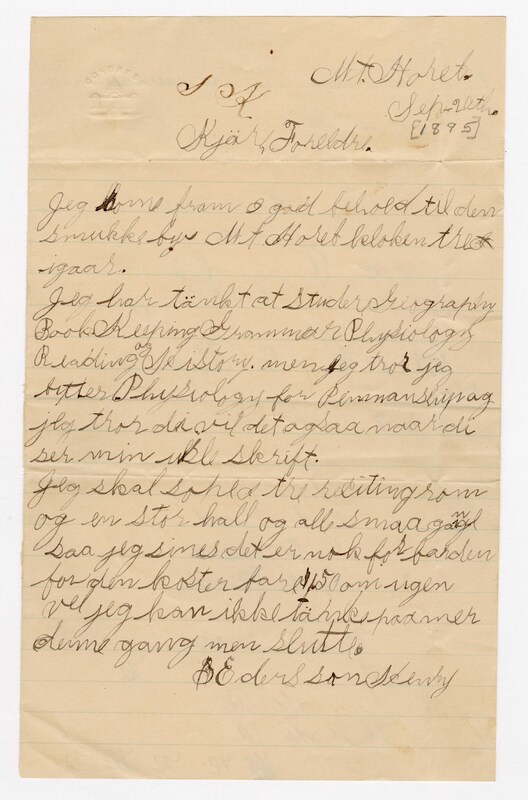 Mt. Horet.
Sep. 20th.
[1895]
S K
Kjäre Foreldre.
Jeg kome fram i god behold til den
smukke by Mt Horet klokken tre
igaar.
Jeg har tänkt at studer Geography
Book Keeping Grammar Physiology
Reading og History. men jeg tror jeg
bitter Physiology for Penmanship og
jeg tror di vil det ogsaa naar di
ser min usle skrift.
Jeg skal sope tre reciting rom
og en stor hall og alle smaa gang
saa jeg sines det er nok for barden
for den koster bare 1,50 om ugen
vel jeg kan ikke tänke paa mer
denne gang men slutte.
Eders son Henry